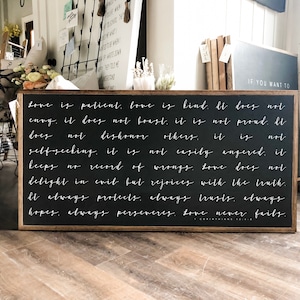 Love is patient, love is kind. It does not
envy, it does not boast, it is not proud. It
does not dishonor others, it is not
self-seeking, it is not easily angered,
keeps no record of wrongs. Love does not
delight in evil but rejoices with the truth.
It always protects, always trusts, always
hopes, always perseveres. Love never fails.
1 CORINTHIANS 13:4-8
IF YOU WANT TO